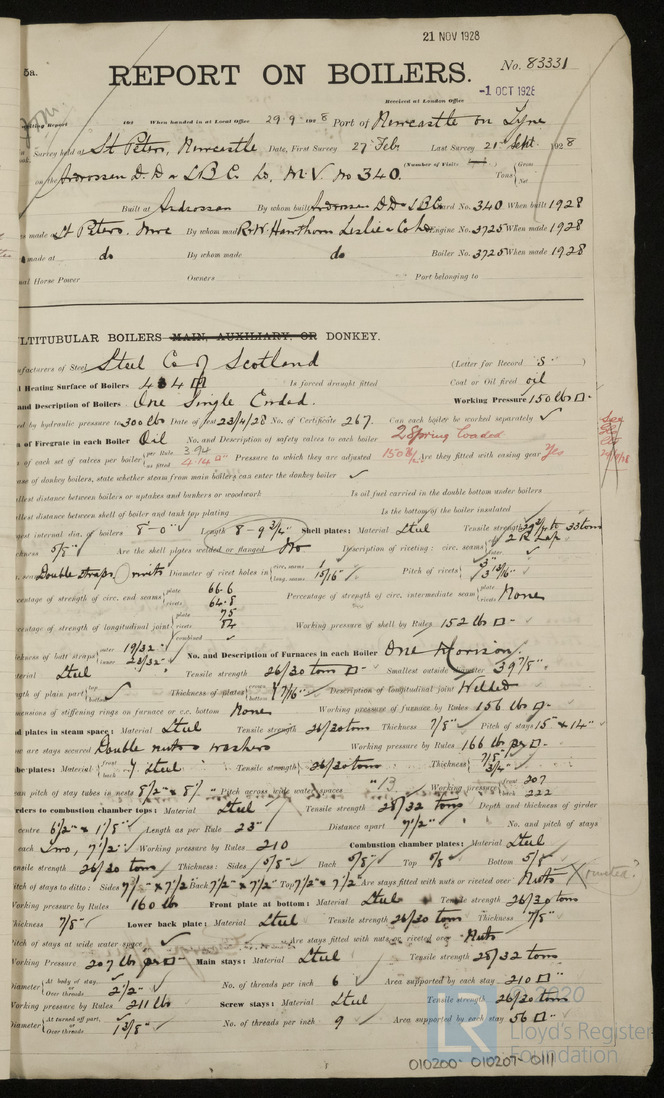 21 NOV 1928
5a.
REPORT ON BOILERS.
No. 83331
Received at London Office
-1 OCT 1928
When handed in at Local Office 29-9-1928 Port of Newcastle on Tyne
Survey held at St Peters, Newcastle Date, First Survey 27 Feb Last Survey 21st Sept 1928
(Number of Visits
on the Ardrossan D.D & S.B.C. Lo. M.V. No 340. Tons Gross Net
Built at Ardrossan By whom built Ardrossan DD & SBC Yard No. 340 When built 1928
made at St Peters. By whom made R&W. Hawthorn Leslie & Co Ld Engine No. 3725 When made 1928
made at do By whom made do Boiler No. 3725 When made 1928
Horse Power Owners Port belonging to
MULTITUBULAR BOILERS MAIN, AUXILIARY, OR DONKEY.
Manufacturers of Steel Steel Co of Scotland (Letter for Record S )
Heating Surface of Boilers Is forced draught fitted Coal or Oil fired oil
and Description of Boilers One Single Ended. Working Pressure 150 lbs □
by hydraulic pressure to 300 lbs Date of test 23/4/28 No. of Certificate 267. Can each boiler be worked separately ✓
of Firegrate in each Boiler Oil No. and Description of safety valves to each boiler 2 Spring loaded
of each set of valves per boiler per Rule 3.94 as fitted 4.14 □" Pressure to which they are adjusted 150 lbs Are they fitted with easing gear Yes
case of donkey boilers, state whether steam from main boilers can enter the donkey boiler ✓
distance between boilers or uptakes and bunkers or woodwork Is oil fuel carried in the double bottom under boilers
distance between shell of boiler and tank top plating Is the bottom of the boiler insulated
internal dia. of boilers 8'-0" Length 8-9 3/4" Shell plates: Material Steel Tensile strength 29 3/4 to 33 tons
Thickness 5/8" Are the shell plates welded or flanged No Description of riveting: circ. seams 2 R Lap
Double straps rivets Diameter of rivet holes in circ. seams long. seams 15/16" Pitch of rivets 3" 3 13/16"
percentage of strength of circ. end seams plate 66.6 rivets 64.8 Percentage of strength of circ. intermediate seam plate rivets None
percentage of strength of longitudinal joint plate 75 rivets 84 combined Working pressure of shell by Rules 152 lb □
Thickness of butt straps outer 19/32" inner 23/32" No. and Description of Furnaces in each Boiler One Morison.
Material Steel Tensile strength 26/30 tons □ Smallest outside diameter 39 7/8"
Length of plain part top bottom Thickness of plates crown bottom 7/16" Description of longitudinal joint Welded
Dimensions of stiffening rings on furnace or c.c. bottom None Working pressure of furnace by Rules 156 lb □
End plates in steam space: Material Steel Tensile strength 26/30 tons Thickness 7/8" Pitch of stays 15" x 14"
How are stays secured Double nuts & washers Working pressure by Rules 166 lb per □
Tube plates: Material front back Steel Tensile strength 26/30 tons Thickness 7/8" 3/4"
Mean pitch of stay tubes in nests Pitch across wide water spaces 13 Working pressure front 207 back 222
Girders to combustion chamber tops: Material Steel Tensile strength 28/32 tons Depth and thickness of girder
centre 6 1/2" x 1 1/8" Length as per Rule 23" Distance apart 7 1/2" No. and pitch of stays
each Two, 7 1/2" Working pressure by Rules 210 Combustion chamber plates: Material Steel
Tensile strength 26/30 tons Thickness: Sides 5/8" Back 5/8" Top 5/8 Bottom 5/8"
Pitch of stays to ditto: Sides 7 1/2 x 7 1/2 Back 7 1/2 x 7 1/2 Top 7 1/2 x 7 1/2 Are stays fitted with nuts or riveted over Nuts X riveted?
Working pressure by Rules 160 lb Front plate at bottom: Material Steel Tensile strength 26/30 tons
Thickness 7/8" Lower back plate: Material Steel Tensile strength 26/30 tons Thickness 7/8"
Pitch of stays at wide water space Are stays fitted with nuts or riveted over Nuts
Working Pressure 207 lb per □ Main stays: Material Steel Tensile strength 28/32 tons
Diameter At body of stay, Over threads 2 1/2" No. of threads per inch 6 Area supported by each stay 210 □"
Working pressure by Rules 211 lbs Screw stays: Material Steel Tensile strength 26/30 tons
Diameter At turned off part, Over threads 1 3/8" No. of threads per inch 9 Area supported by each stay 56 □"
© 2020
LR Lloyd's Register Foundation
010200-010207-0111